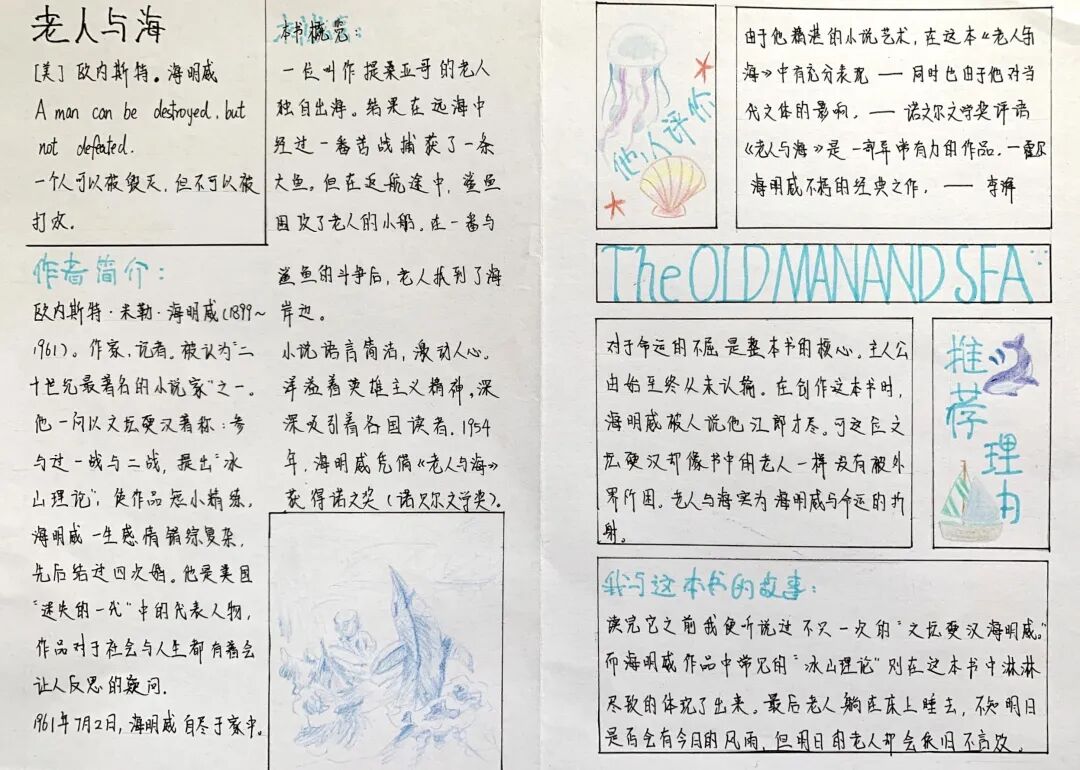 老人与海
[美] 欧内斯特。海明威
A man can be destroyed, but
not defeated.
一个人可以被毁灭，但不可以被
打败.
作者简介：
欧内斯特·米勒·海明威(1899~
1961)。作家，记者。被认为"二
十世纪最著名的小说家"之一。
他一向以文坛硬汉著称：参
与过一战与二战，提出"冰
山理论"；使作品短小精练，
海明威一生感情错综复杂，
先后结过四次婚。他是美国
"迷失的一代"中的代表人物，
作品对于社会与人生都有着会
让人反思的疑问.
1961年7月2日，海明威自尽于家中。
本书概览：
一位叫作提桑亚哥的老人
独自出海。结果在远海中
经过一番苦战捕获了一条
大鱼。但在返航途中，鲨鱼
围攻了老人的小船。在一番与
鲨鱼的斗争后，老人找到了海
岸边。
小说语言简洁，激动人心。
洋溢着英雄主义精神。深
深吸引着各国读者. 1954
年，海明威凭借《老人与海》
获得诺文奖（诺贝尔文学奖）。
他人评价
由于他精湛的小说艺术，在这本《老人与
海》中有充分表现 — 同时也由于他对当
代文体的影响. — 诺贝尔文学奖评语
《老人与海》是一部异常有力的作品. —霍尔
海明威不朽的经典之作. —
The OLD MAN AND SEA
对于命运的不屈是整本书的核心。主人公
由始至终从未认输。在创作这本书时，
海明威被人说他江郎才尽。可这位文
坛硬汉却像书中的老人一样没有被外
界所困。老人与海实为海明威与命运的折
射。
推荐
理由
我与这本书的故事：
读完它之前我便听说过不只一次的"文坛硬汉海明威。"
而海明威作品中常见的"冰山理论"则在这本书中淋淋
尽致的体现了出来。最后老人躺在床上睡去，不知明日
是否会有今日的风雨，但明日的老人却会依旧不言败。